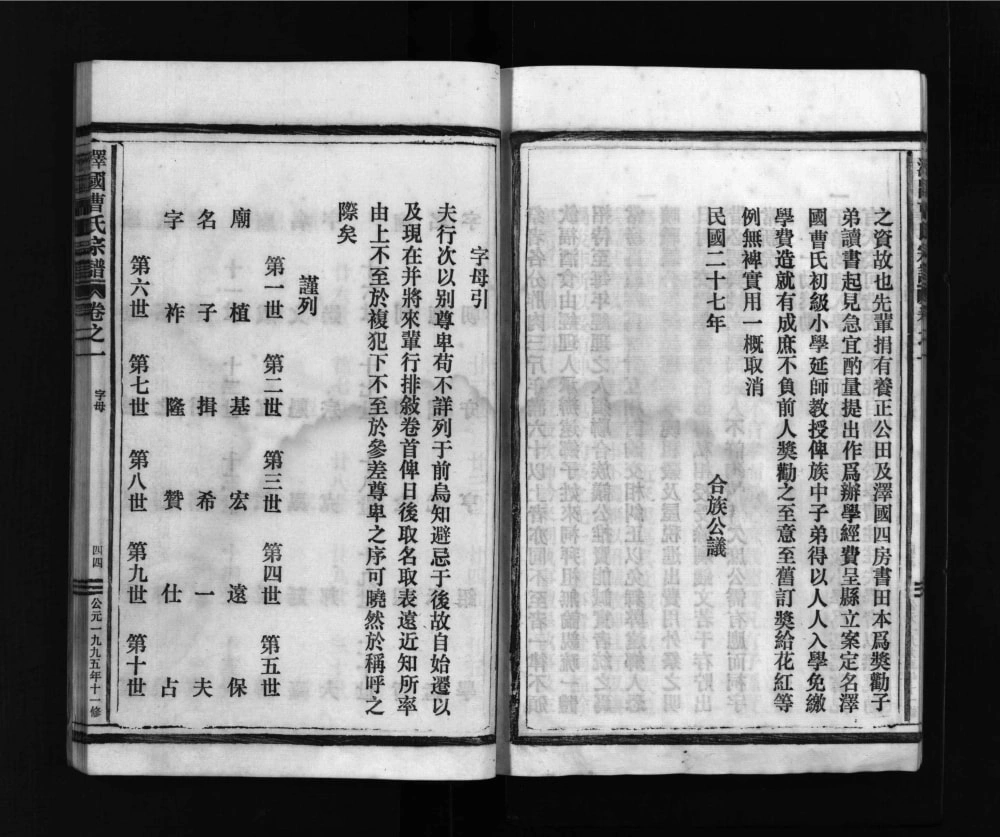 之資故也先輩捐有養正公田及澤國四房書田本爲獎勸子
弟讀書起見急宜酌量提出作爲辦學經費呈縣立案定名澤
國曹氏初級小學延師教授俾族中子弟得以人人入學免繳
學費造就有成庶不負前人獎勸之至意至舊訂獎給花紅等
例無裨實用一概取消
民國二十七年　合族公議
字母引
夫行次以别尊卑苟不詳列于前烏知避忌于後故自始遷以
及現在并將來輩行排敍卷首俾日後取名取表遠近知所率
由上不至於複犯下不至於參差尊卑之序可曉然於稱呼之
際矣
謹列
第一世　第二世　第三世　第四世　第五世
廟　植　基　宏　遠　保
名　子　揖　希　一　夫
字　祚　隆　贊　仕　占
第六世　第七世　第八世　第九世　第十世
澤國曹氏宗譜　卷之一　字母　四四　公元一九九五年十一修